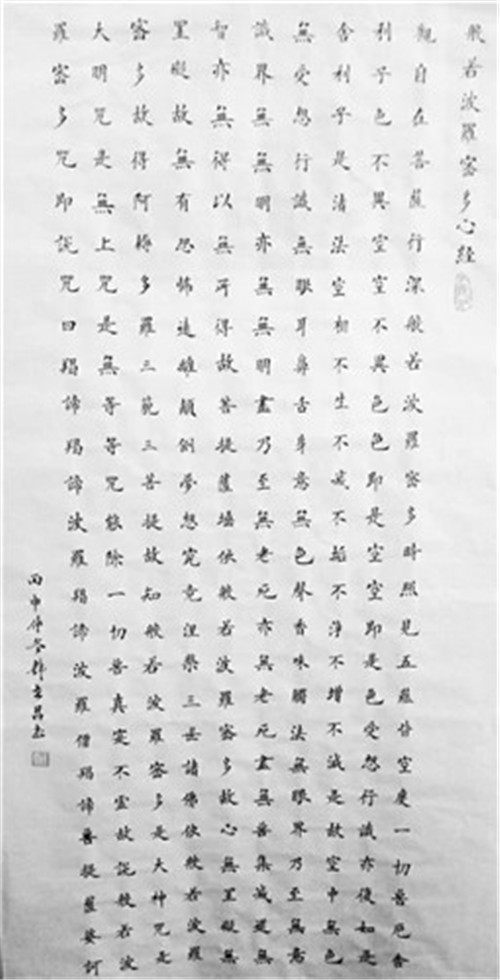 般若波羅密多心經
觀自在菩薩行深般若波羅密多時照見五蘊皆空度一切苦厄舍
利子色不異空空不異色色即是空空即是色受想行識亦復如是
舍利子是諸法空相不生不滅不垢不淨不增不減是故空中無色
無受想行識無眼耳鼻舌身意無色聲香味觸法無眼界乃至無意
識界無無明亦無無明盡乃至無老死亦無老死盡無苦集滅道無
智亦無得以無所得故菩提薩埵依般若波羅密多故心無罣礙無
罣礙故無有恐怖遠離顛倒夢想究竟涅槃三世諸佛依般若波羅
密多故得阿耨多羅三藐三菩提故知般若波羅密多是大神咒是
大明咒是無上咒是無等等咒能除一切苦真實不虛故說般若波
羅密多咒即說咒曰揭諦揭諦波羅揭諦波羅僧揭諦菩提薩婆訶
丙申仲冬韓